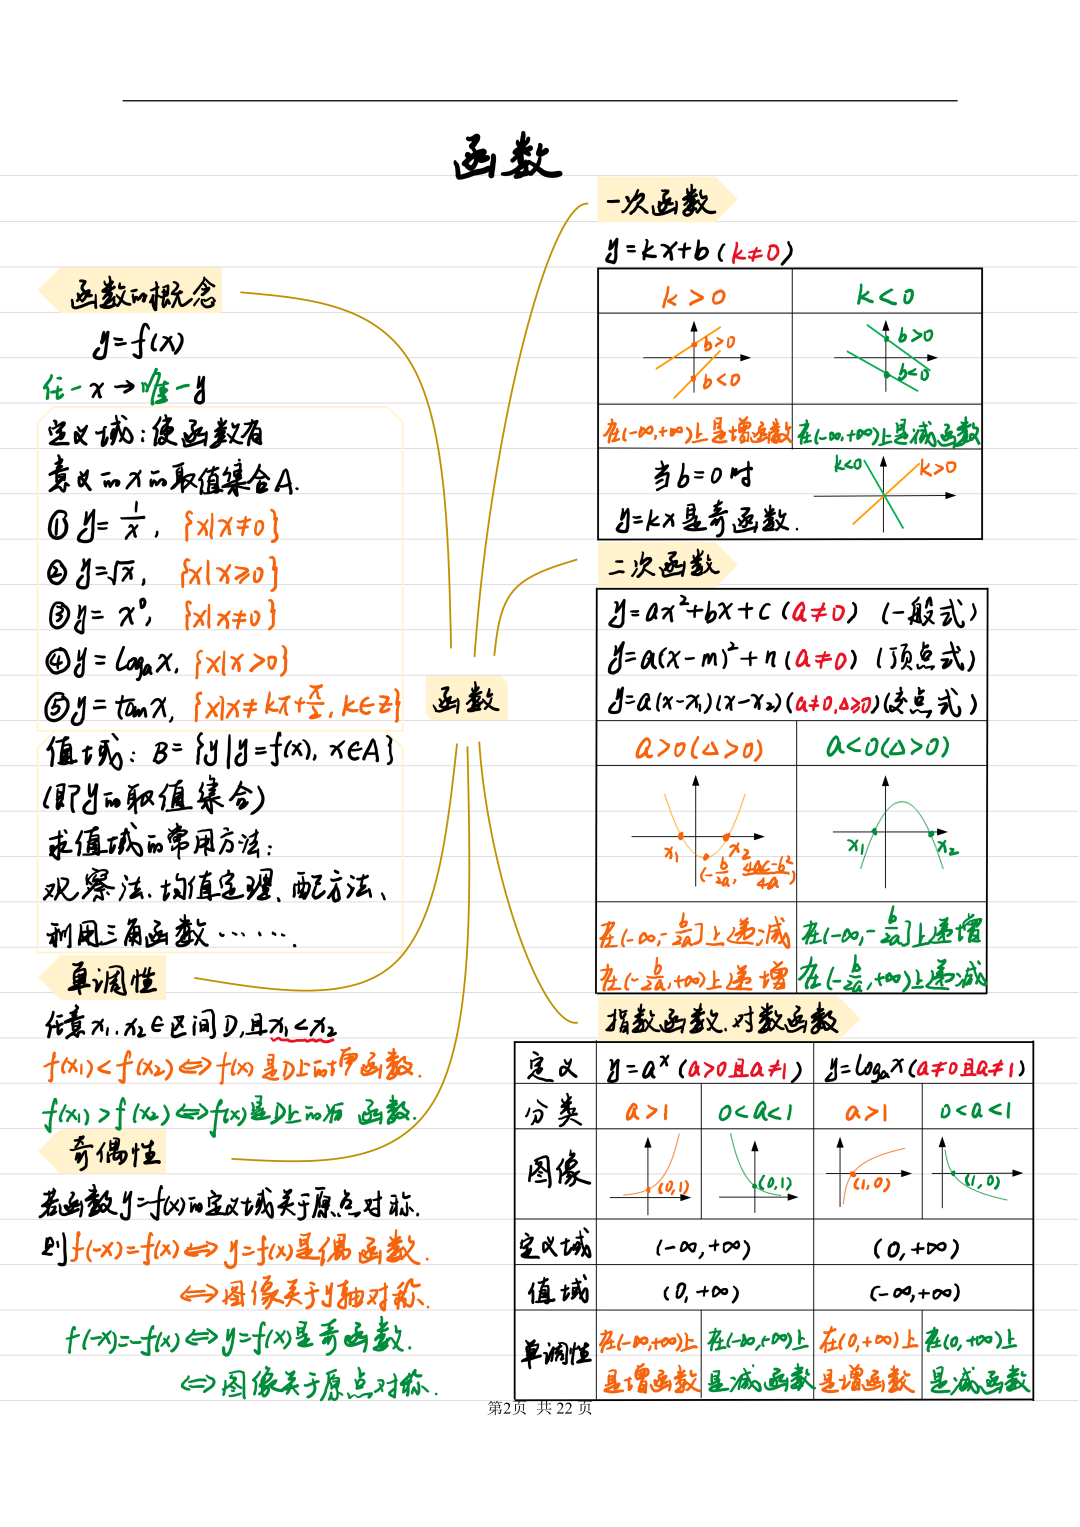 函数
函数的概念
y=f(x)
任一x→唯一y
定义域:使函数有
意义的x的取值集合A.
① y=1/x, {x|x≠0}
② y=√x, {x|x≥0}
③ y=x⁰, {x|x≠0}
④ y=logₐx, {x|x>0}
⑤ y=tanx, {x|x≠kπ+π/2, k∈Z}
值域: B={y|y=f(x), x∈A}
(即y的取值集合)
求值域的常用方法:
观察法、均值定理、配方法、
利用三角函数…….
单调性
任意x₁,x₂∈区间D,且x₁<x₂
f(x₁)<f(x₂)⇔f(x)是D上的增函数.
f(x₁)>f(x₂)⇔f(x)是D上的 函数.
奇偶性
若函数y=f(x)的定义域关于原点对称.
则f(-x)=f(x)⇔y=f(x)是偶函数.
⇔图像关于y轴对称.
f(-x)=-f(x)⇔y=f(x)是奇函数.
⇔图像关于原点对称.
函数
一次函数
y=kx+b(k≠0)
k>0 k<0
b>0 b>0
b<0 b<0
在(-∞,+∞)上是增函数 在(-∞,+∞)上是减函数
当b=0时 k<0 k>0
y=kx是奇函数.
二次函数
y=ax²+bx+c(a≠0) (一般式)
y=a(x-m)²+n(a≠0) (顶点式)
y=a(x-x₁)(x-x₂)(a≠0,Δ≥0)(交点式)
a>0(Δ>0) a<0(Δ>0)
x₁ x₂ x₁ x₂
(-b/2a, 4ac-b²/4a)
在(-∞,-b/2a]上递减 在(-∞,-b/2a]上递增
在(-b/2a,+∞)上递增 在(-b/2a,+∞)上递减
指数函数.对数函数
定义 y=aˣ(a>0且a≠1) y=logₐx(a≠0且a≠1)
分类 a>1 0<a<1 a>1 0<a<1
图像 (0,1) (0,1) (1,0) (1,0)
定义域 (-∞,+∞) (0,+∞)
值域 (0,+∞) (-∞,+∞)
单调性 在(-∞,+∞)上 在(-∞,+∞)上 在(0,+∞)上 在(0,+∞)上
是增函数 是减函数 是增函数 是减函数
第2页 共 22 页